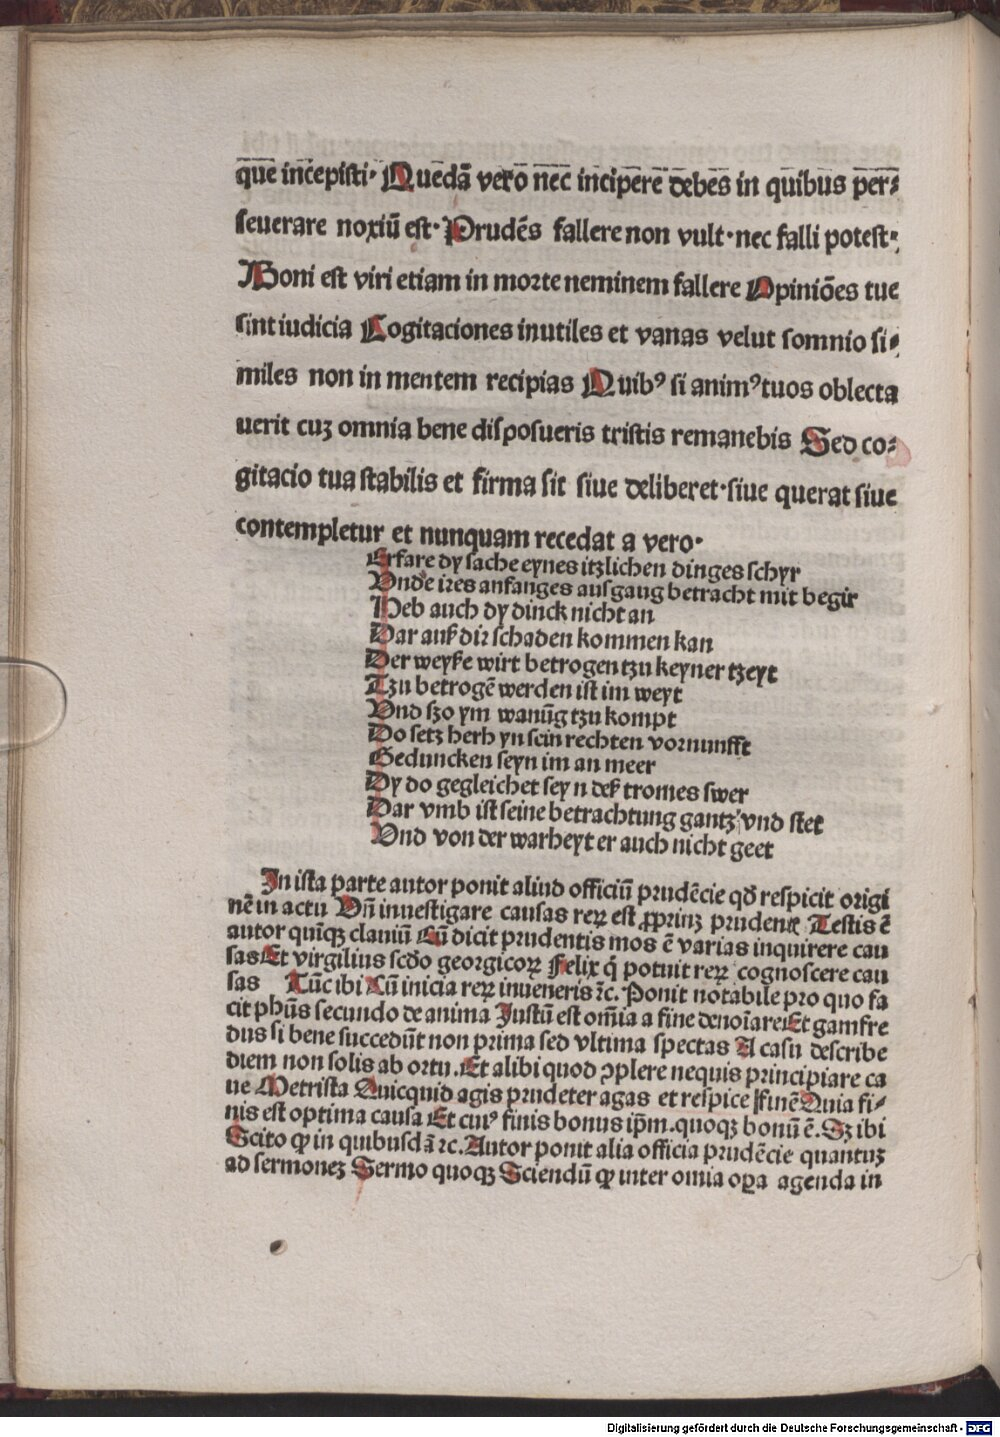 que incepisti· Quedā vero nec incipere debes in quibus per⸗
seuerare noxiū est· Prudēs fallere non vult·nec falli potest·
Boni est viri etiam in morte neminem fallere Opiniōes tue
sint iudicia Cogitaciones inutiles et vanas velut somnio si⸗
miles non in mentem recipias Quibꝰ si animꝰ tuos oblecta
uerit cuꝫ omnia bene disposueris tristis remanebis Sed co⸗
gitacio tua stabilis et firma sit siue deliberet·siue querat siue
contempletur et nunquam recedat a vero·
Erfare dy sache eynes itzlichen dinges schyr
Vnde ires anfanges ausgang betracht mit begir
Heb auch dy dinck nicht an
Dar auß dir schaden kommen kan
Der weyße wirt betrogen tzu keyner tzeyt
Tzu betrogē werden ist im weyt
Vnd szo ym wanūg tzu kompt
Do setz herh yn sein rechten vornunfft
Geduncken seyn im an meer
Dy do gegleichet seyn deß tromes swer
Dar vmb ist seine betrachtung gantz vnd stet
Vnd von der warheyt er auch nicht geet
In ista parte autor ponit aliud officiū prudēcie qd̄ respicit origi
nē in actu Vn̄ inuestigare causas reꝝ est ꝓprinꝫ prudentꝭ Testis ē
autor quīqꝫ clauiū Cū dicit prudentis mos ē varias inquirere cau
sas Et virgilius scdo georgicoꝝ Felix q̇ potuit reꝝ cognoscere cau
sas Tūc ibi Cū inicia reꝝ inueneris ⁊c. Ponit notabile pro quo fa
cit ph̄us secundo de anima Justū est om̄ia a fine denoīare Et gamfre
dus si bene succedūt non prima sed vltima spectas A casu describe
diem non solis ab ortu. Et alibi quod ꝯplere nequis principiare ca
ue Metrista Quicquid agis prudēter agas et respice finē Quia fi⸗
nis est optima causa Et cuiꝰ finis bonus ip̄m.quoqꝫ bonū ē. Sꝫ ibi
Scito ꝙ in quibusdā ⁊c. Autor ponit alia officia prudēcie quantuꝫ
ad sermoneꝫ Sermo quoqꝫ Sciendū ꝙ inter omia oꝑa agenda in
Digitalisierung gefördert durch die Deutsche Forschungsgemeinschaft - DFG